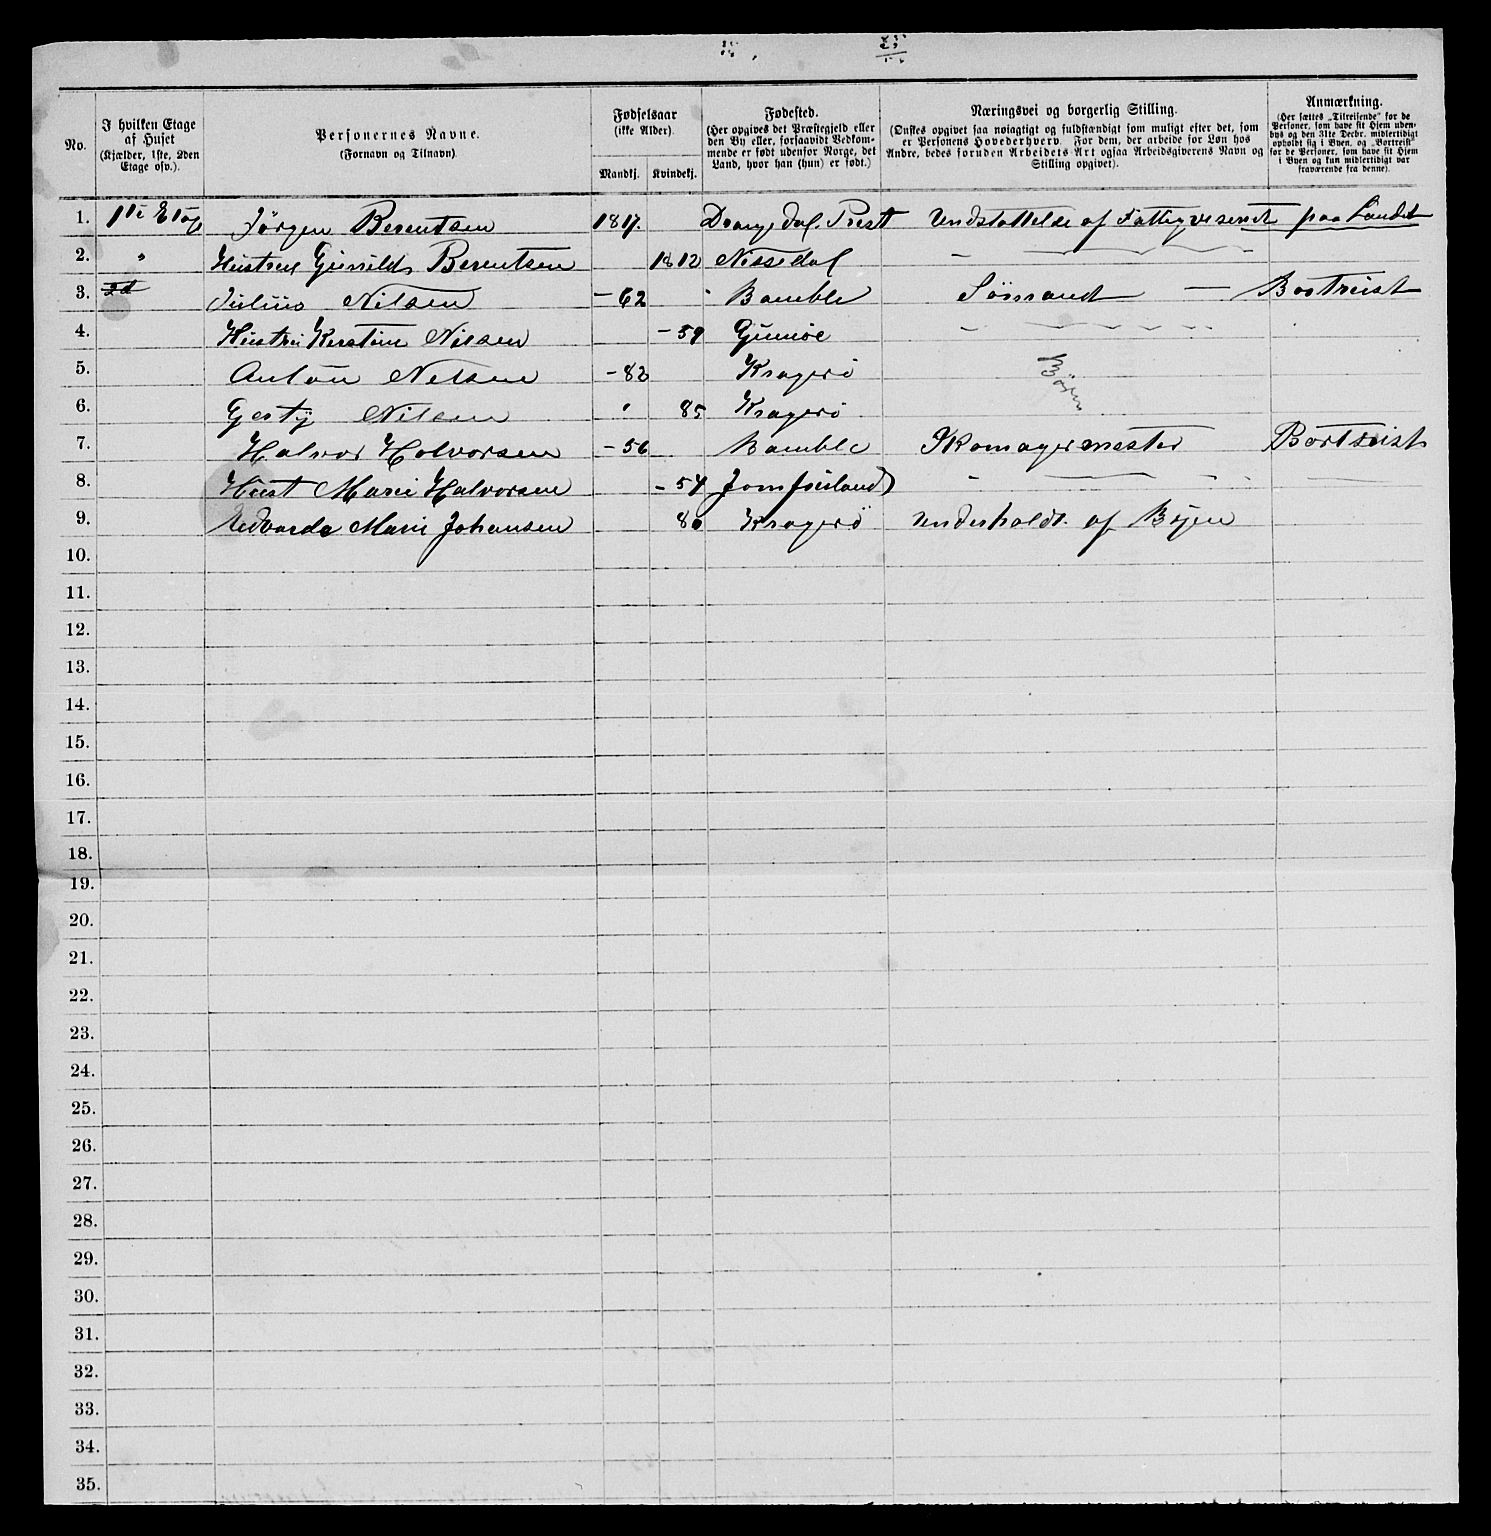 No.
I hvilken Etage af Huset (Kjælder, 1ste, 2den Etage osv.).
Personernes Navne. (Fornavn og Tilnavn)
Fødselsaar (ikke Alder). Mandkj. Kvindekj.
Fødested. (Her opgives det Præstegjeld eller den By eller, forsaavidt Vedkommende er født udenfor Norge, det Land, hvor han (hun) er født.)
Næringsvei og borgerlig Stilling. (Ønskes opgivet saa nøiagtigt og fuldstændigt som muligt efter det, som er Personens Hovederhverv. For dem, der arbeide for Løn hos Andre, bedes foruden Arbeidets Art ogsaa Arbeidsgiverens Navn og Stilling opgivet).
Anmærkning. (Her sættes „Tilreisende" for de Personer, som have sit Hjem udenbys og den 31te Decbr. midlertidigt opholdt sig i Byen, og „Bortreist" for de Personer, som have sit Hjem i Byen og kun midlertidigt var fraværende fra denne).
1. 1ste Etage Jørgen Berentsen 1817. Drangedal. Prest Undstøttelse af Fattigvesenet paa Landet
2. " Hustru Gunild Berentsen 1812 Nissedal
3. 2d Julius Nilsen - 62 Bamble Sømand — Bortreist
4. Hustru Kerstine Nilsen - 59 Gumøe
5. Anton Nilsen - 82 Kragerö Börn
6. Nilsen " 85 Kragerö
7. Halvor Halvorsen - 56 Bamble Skomagermester Bortreist
8. Hust Marie Halvorsen - 54 Jomfruland
9. Edvarda Marie Johansen 80 Kragerö Underholdt. af Byen
10.
11.
12.
13.
14.
15.
16.
17.
18.
19.
20.
21.
22.
23.
24.
25.
26.
27.
28.
29.
30.
31.
32.
33.
34.
35.